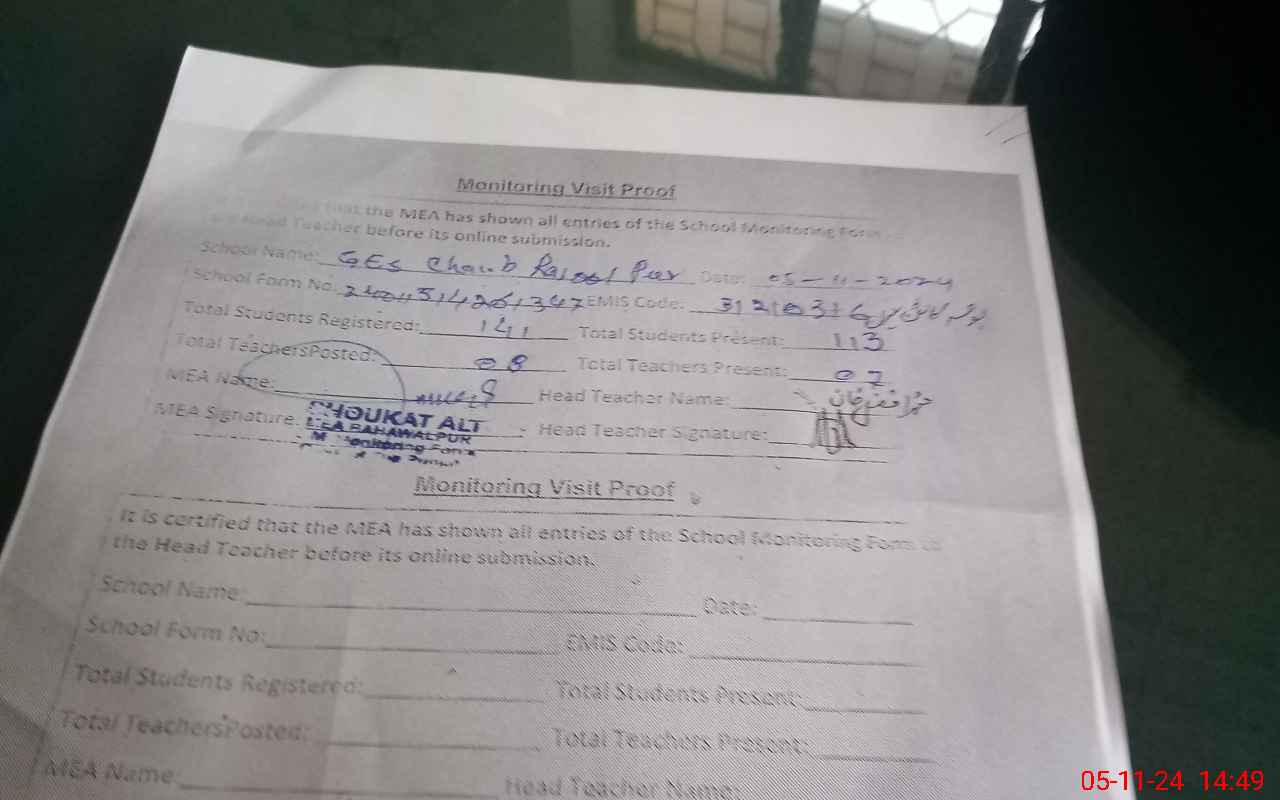 Monitoring Visit Proof
that the MEA has shown all entries of the School Monitoring Form
Head Teacher before its online submission.
School Name: GES Rasool Pur Date: 05-11-2024
School Form No. EMIS Code:
Total Students Registered: 141 Total Students Present: 113
Total TeachersPosted: 08 Total Teachers Present: 07
MEA Name: Head Teacher Name:
MEA Signature: Head Teacher Signature:
SHOUKAT ALI
MEA BAHAWALPUR
Monitoring
Monitoring Visit Proof
It is certified that the MEA has shown all entries of the School Monitoring Form to
the Head Teacher before its online submission.
School Name: Date:
School Form No: EMIS Code:
Total Students Registered: Total Students Present:
Total TeachersPosted: Total Teachers Present:
MEA Name: Head Teacher Name:
05-11-24 14:49